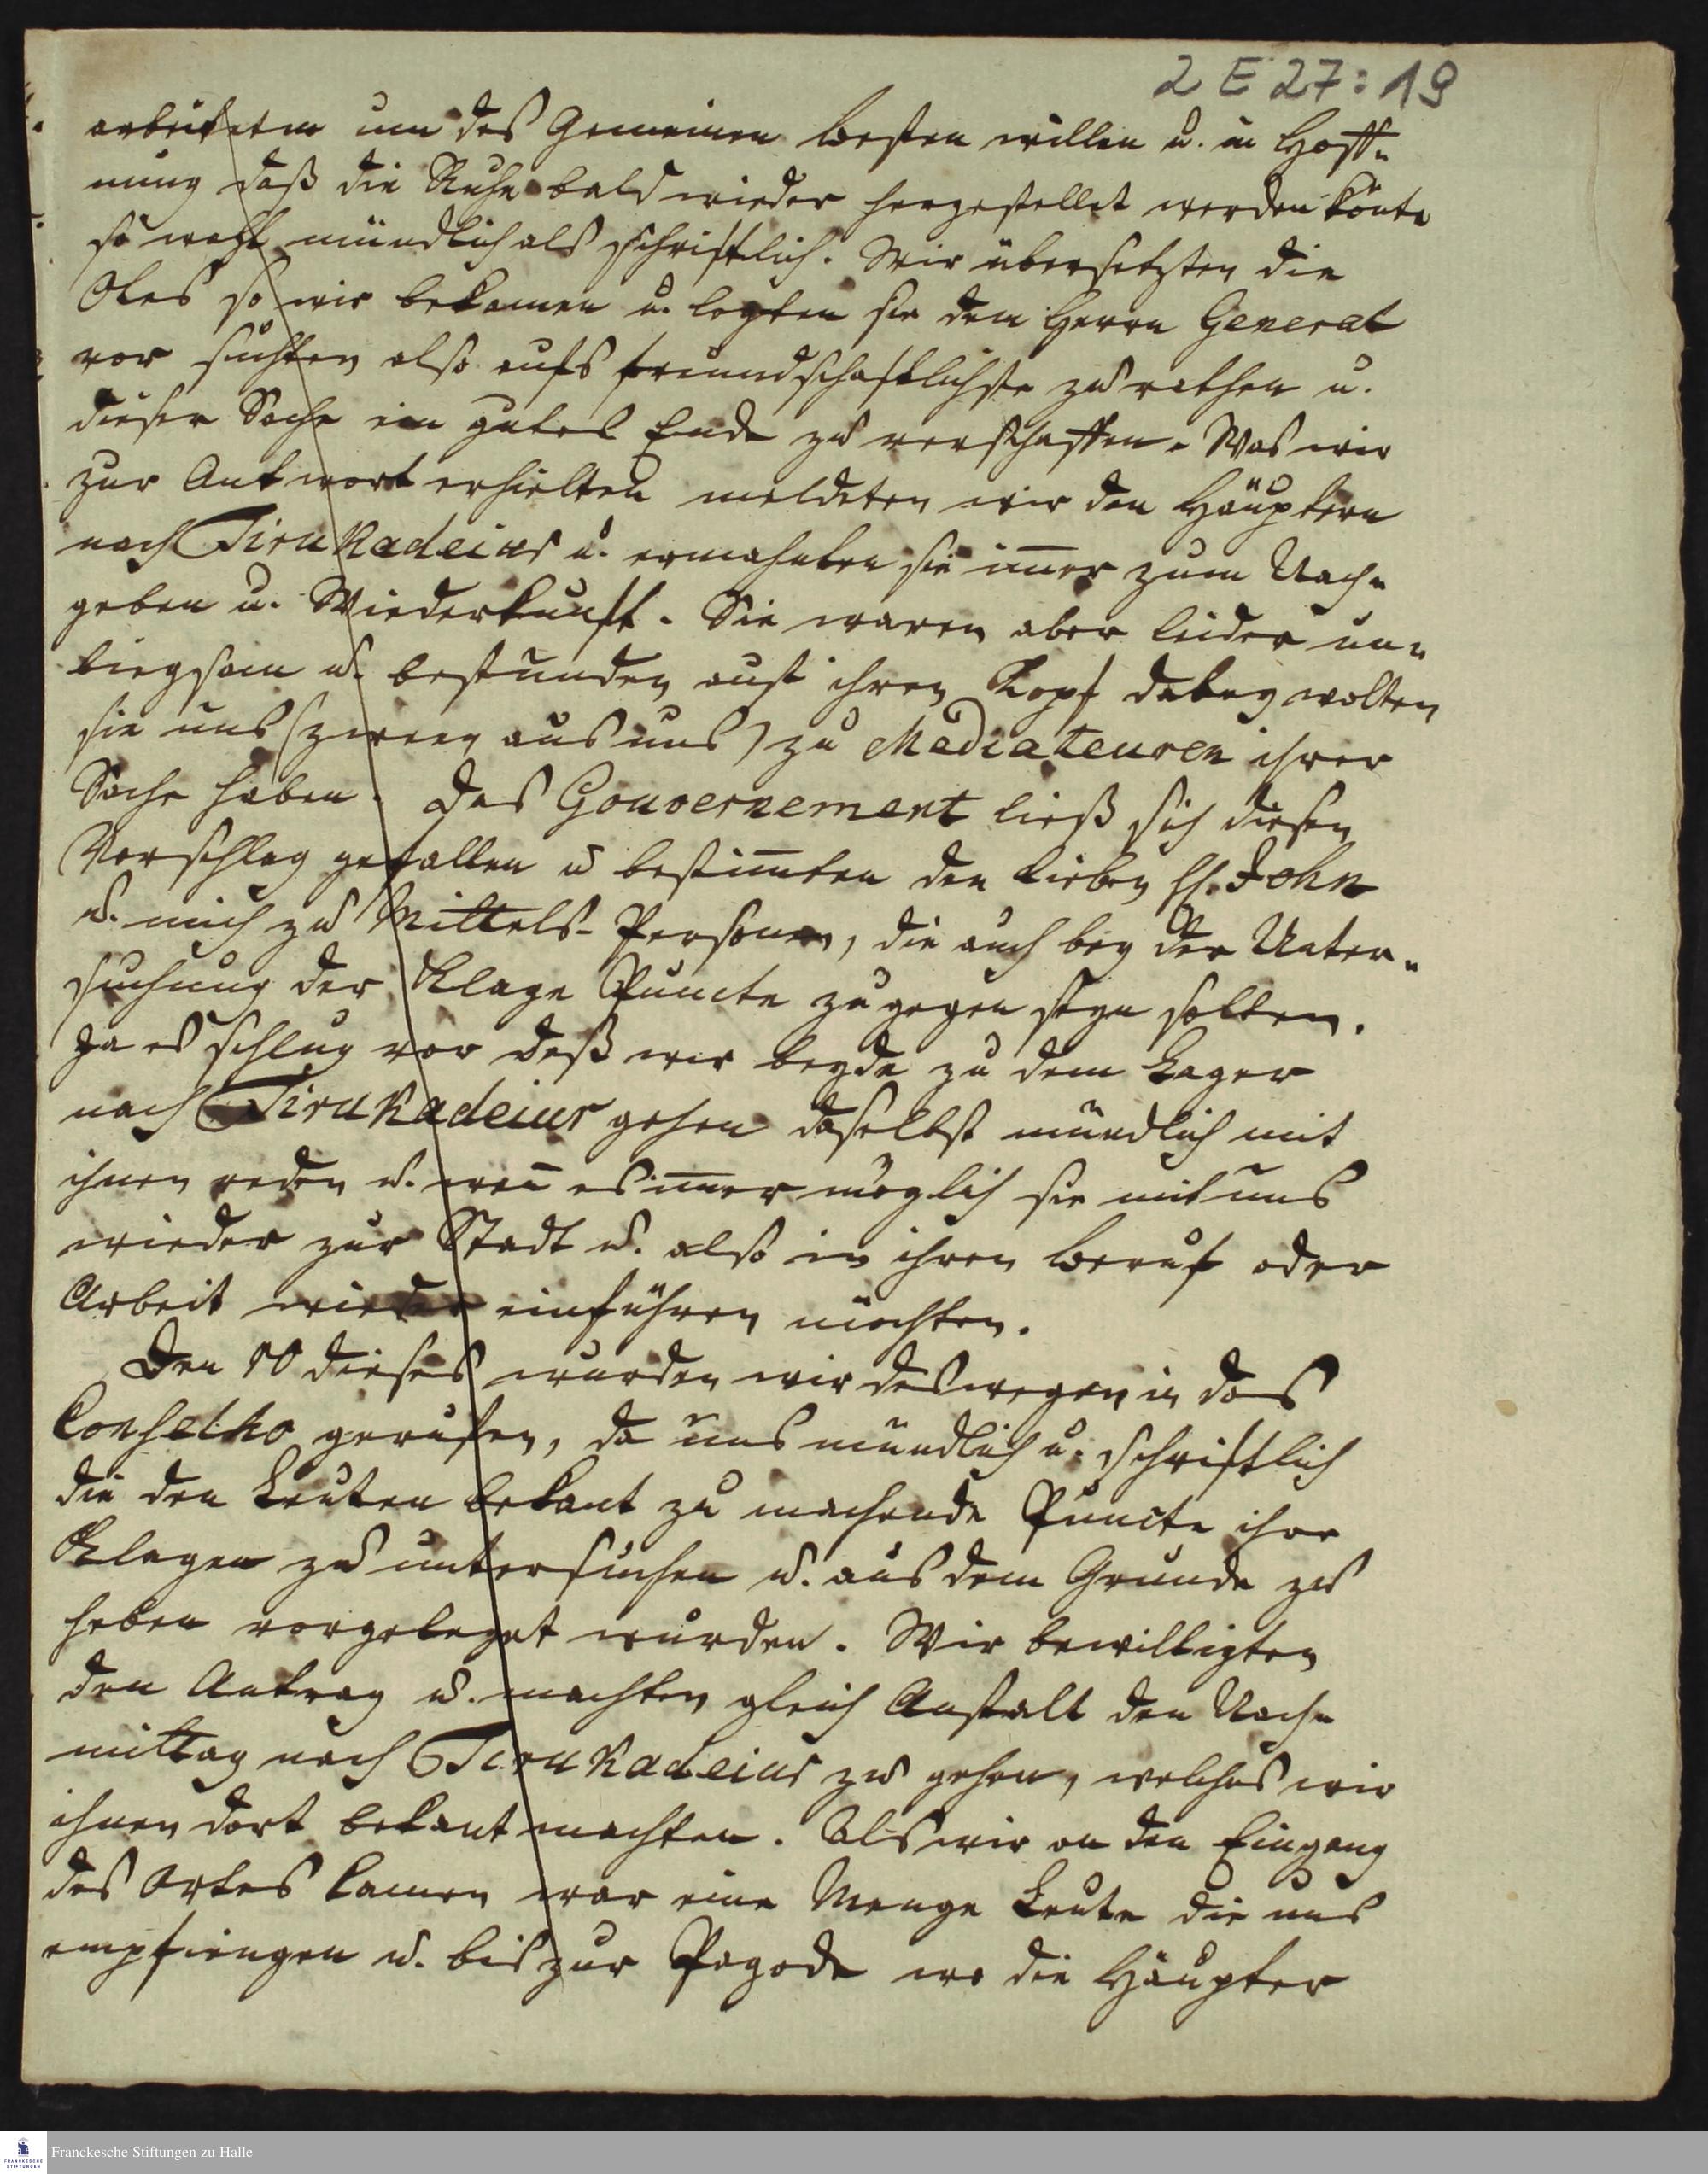 2 E 27:19
arbeiteten um des Gemeinen Besten willen u. in Hoff-
nung daß die Ruhe bald wieder hergestellet werden könte
so wohl mündlich als schriftlich. Wir übersetzten die
Oles so wir bekamen u. legten sie dem Herrn General
vor suchten also aufs freundschaftlichste zu rathen u.
dieser Sache ein gutes Ende zu verschaffen. Was wir
zur Antwort erhielten meldeten wir den Häuptern
nach Tirukadeiur u. ermahnten sie im̅er zum Nach-
geben u. Wiederkunft. Sie waren aber leider un-
biegsam u. bestunden auf ihren Kopf dabey wolten
sie uns (zween aus uns) zu Mediateuren ihrer
Sache haben. Das Gouvernement ließ sich diesen
Vorschlag gefallen u bestim̅ten den lieben H. John
u. mich zu Mittels-Personen, die auch bey der Unter-
suchung der Klage Puncte zugegen seyn solten.
Ja es schlug vor daß wir beyde zu dem Lager
nach Tirukadeiur gehen daselbst mündlich mit
ihnen reden u. wen̅ es im̅er möglich sie mit uns
wieder zur Stadt u. also in ihren Beruf oder
Arbeit wieder einführen möchten.
Den 10 dieses wurden wir deswegen in das
Conselho gerufen, da uns mündlich u. schriftlich
die den Leuten bekant zu machende Puncte ihre
Klagen zu untersuchen u. aus dem Grunde zu
heben vorgeleget wurden. Wir bewilligten
den Antrag u. machten gleich Anstalt den Nach-
mittag nach Tirukadeiur zu gehen, welches wir
ihnen dort bekant machten. Als wir an den Eingang
des Ortes kamen war eine Menge Leute die uns
empfiengen u. bis zur Pagode wo die Häupter
Franckesche Stiftungen zu Halle